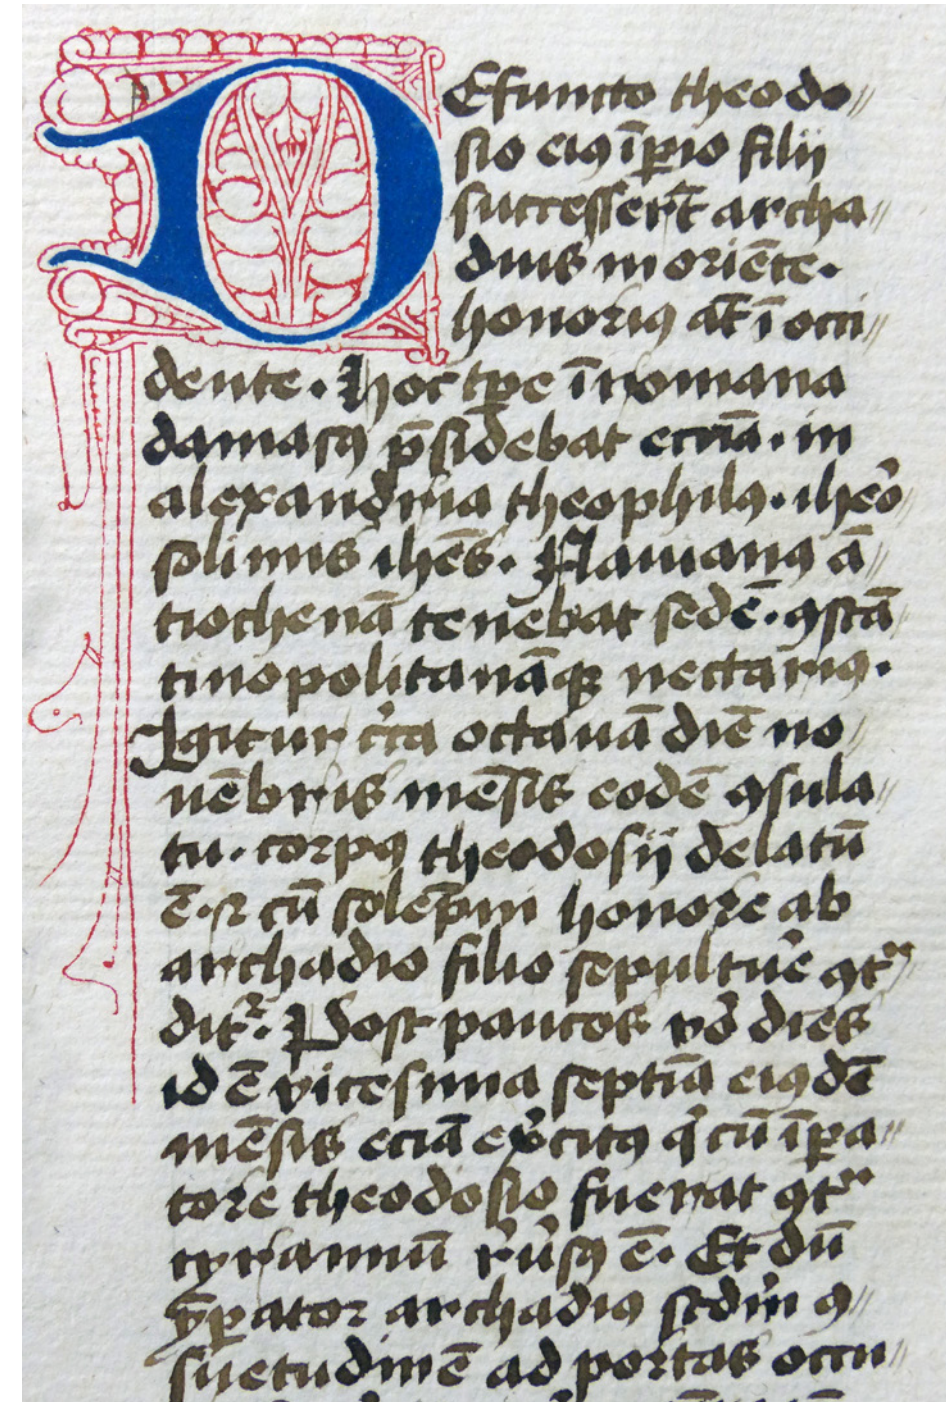 Defuncto theodo
sio eiꝰ ı̄ꝑio filij
successer̄t archa
dius in oriēte.
honoriꝰ aūt ī occi
dente. Hoc tꝑe ī romana
damasꝰ p̄sidebat eccīa. in
alexandria theophilꝰ. ihero
solimis ihēs. Flauianꝰ ā
tiochenā tenebat sedē. ꝯstā
tinopolitanāqꝫ nectariꝰ.
Igitur circa octauā diē no
uēbris mēsis eodē ꝯsula
tu. corpꝰ theodosij delatū
ē. et cū solēpni honore ab
archadio filio sepulture
Post paucos v̉o dies
id ē vicesima septīa eiꝰdē
mēsis eciā ex̉citꝰ qͥ cū īꝑa
tore theodosio fuerat
tyrannū r̉ủsꝰ ē. Et dū
archadiꝰ scdm ꝯ
suetudinē ad portas occu